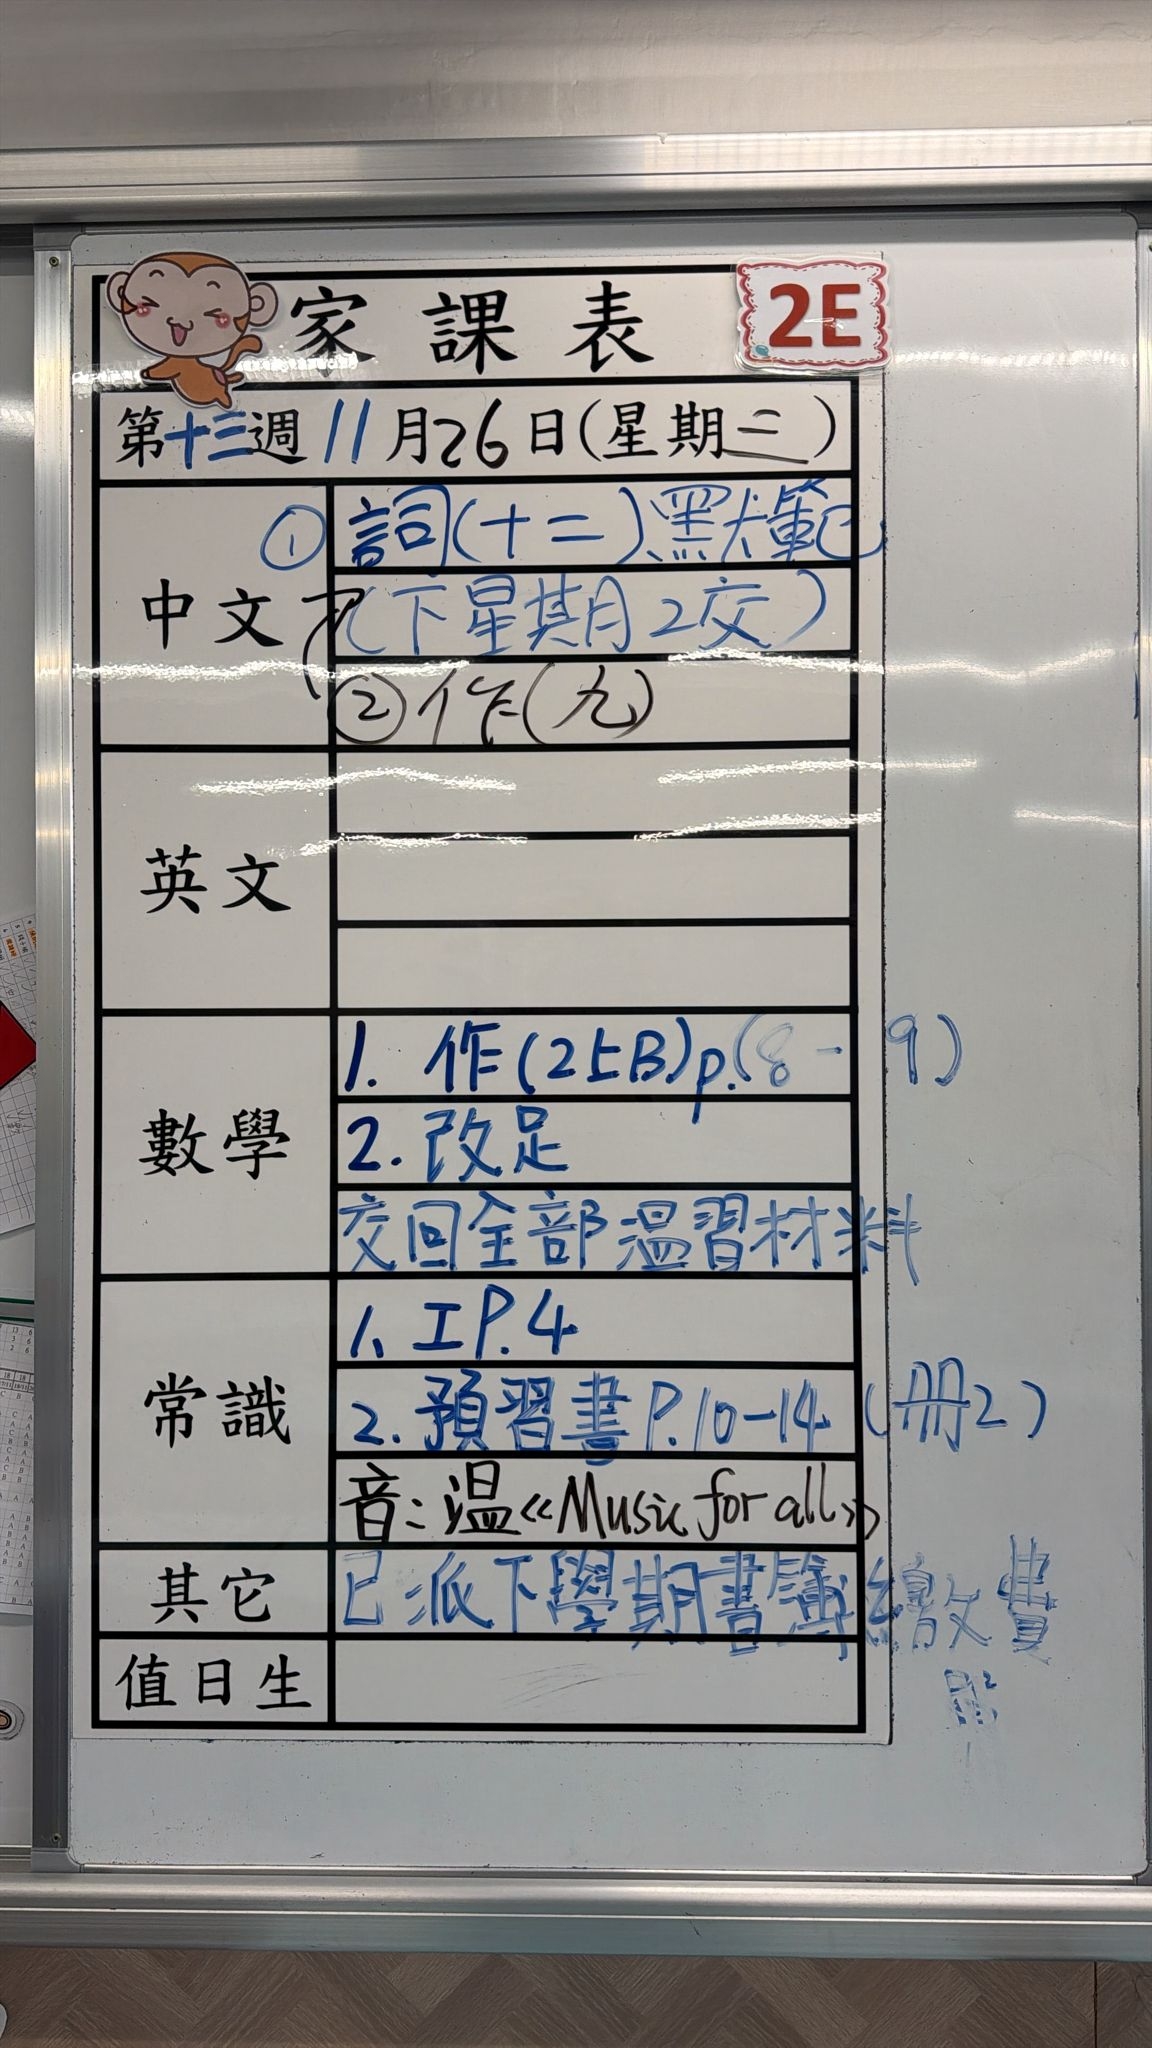 家課表
2E
第十三週 11月26日(星期三)
中文
① 詞(十二)、默範
(下星期2交)
②作(九)
英文
數學
1. 作(2上B)p.(8-9)
2. 改足
交回全部溫習材料
常識
1. 工P.4
2. 預習書P.10-14 (冊2)
音：溫《Music for all》
其它
已派下學期書簿繳費
值日生